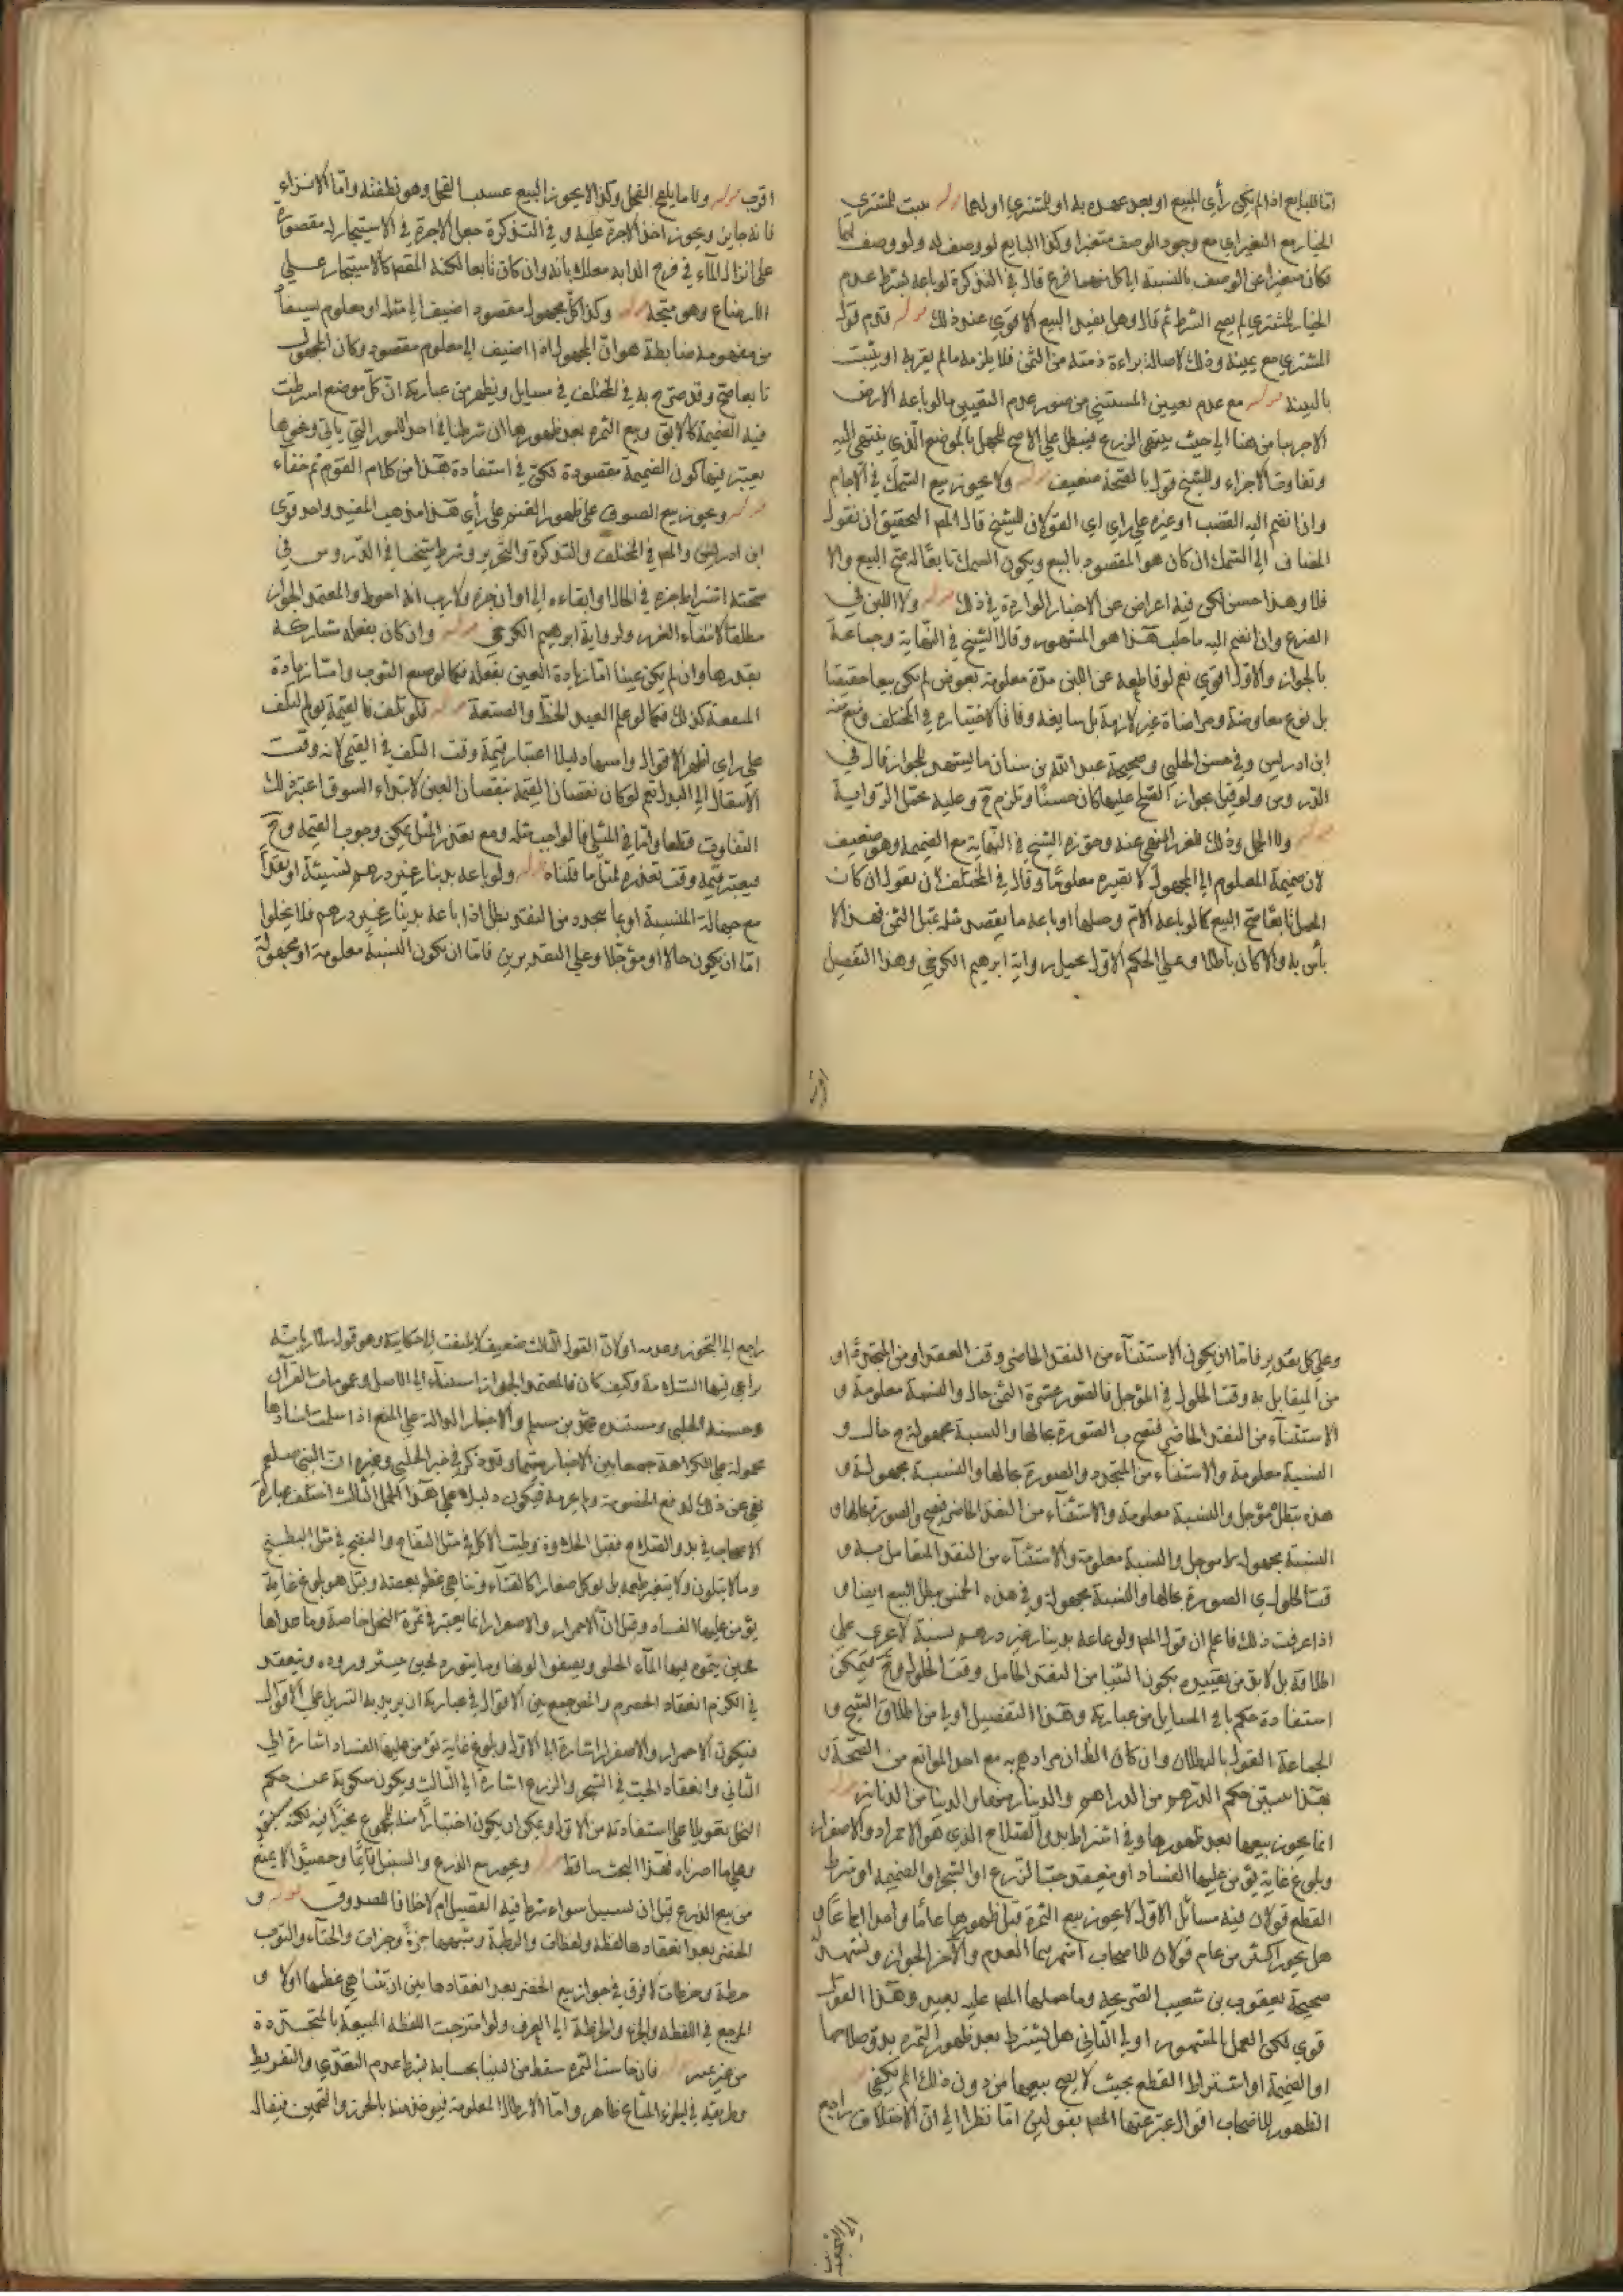 امّا للبايع اذا لم يكن رأى المبيع او بعد عهده به او للمشتري او لهما قوله يثبت للمشتري
الخيار مع التغير اي مع وجود الوصف متغيرا وكذا البايع لو وصف له ولو وصف لهما
فكان متغيرا عن الوصف بالنسبة الى كل منهما فرع قال في التذكرة لو باعه بشرط عدم
الخيار للمشتري لم يصح الشرط ثم قال وهل يفسد البيع الاقوى عند ذلك قوله قدم قول
المشتري مع يمينه وذلك لاصالة براءة ذمته من الثمن فلا يلزمه ما لم يقر به او يثبت
بالبينة قوله مع عدم تعيين المستثنى من صور عدم التعيين ما لو باعه الارض
الا جريبا من هنا الى حيث ينتهي الذرع فيبطل على الاصح للجهل بالموضع الذي ينتهي اليه
وتفاوت الاجزاء وللشيخ قول بالصحة ضعيف قوله ولا يجوز بيع السمك في الآجام
وان انضم اليه القصب او غيره على راي اي القولان للشيخ قال المص التحقيق ان نقول
المضاف الى السمك ان كان هو المقصود بالبيع ويكون السمك تابعًا له صح البيع والا
فلا وهذا حسن لكن فيه اعراض عن الاخبار الواردة في ذلك قوله ولا اللبن في
الضرع وان انضم اليه ما حلب هذا هو المشهور وقال الشيخ في النهاية وجماعة
بالجواز والاول اقوى نعم لو قاطعه عن اللبن مدّة معلومة بعوض لم يكن بيعا حقيقيا
بل نوع معاوضة ومراضاة غير لازمة بل سايغة وفاقا لاختياره في المختلف ومنع منه
ابن ادريس وفي حسن الحلبي وصحيحة عبد الله بن سنان ما يشهد للجواز قال في
الدروس ولو قيل بجواز الصلح عليها كان حسنًا وتلزم ح وعليه تحمل الرواية
قوله ولا الحمل وذلك للغرر المنهي عنه وجوزه الشيخ في النهاية مع الضميمة وهو ضعيف
لان ضميمة المعلوم الى المجهول لا تصيره معلومًا وقال في المختلف لان نقول ان كان
الحمل تابعًا صح البيع كما لو باعه الام وحملها او باعه ما يقصد مثله بمثل الثمن فهذا لا
بأس به والا كان باطلا وعلى الحكم الاول تحمل رواية ابرهيم الكرخي وهذا التفصيل
اقرب
اقرب قوله ولا ما يلقح الفحل وكذا لا يجوز البيع عسب الفحل وهو نطفته وامّا الانزاء
فانه جايز ويجوز اخذ الاجرة عليه وفي التذكرة جعل الاجرة في الاستيجار له مقصورة
على انزال الماء في فرج الدابه معللا بانه وان كان تابعا لكنه المقصود كالاستيجار على
الارضاع وهو متجه قوله وكذا كل مجهول مقصود اضيف الى مثله او معلوم يستفاد
من مفهومه ضابطة هو انّ المجهول اذا اضيف الى معلوم مقصود وكان المجهول
تابعا صح وقد صرّح به في المختلف في مسايل ويظهر من عبارته انّ كلّ موضع اشترطت
فيه الضميمة كالابق وبيع الثمره بعد ظهورها ان شرطنا احد الامور التي ياتي وغيرها
يعتبر فيها كون الضميمة مقصودة لكن في استفادة هذا من كلام القوم ثم خفاء
قوله ويجوز بيع الصوف على ظهور الغنم على رأي هذا مذهب المفيد واحد قولي
ابن ادريس والمص في المختلف والتذكرة والتحرير وشرط شيخنا في الدروس في
صحته اشتراط جزه في الحال او ابقاءه الى اوان جزه ولا ريب انه احوط والمعتمد الجواز
مطلقا لانتفاء الغرر ولرواية ابرهيم الكرخي قوله وان كان بفعله شاركه
بقدرها وان لم يكن عينا امّا زيادة العين بفعله فكما لو صبغ الثوب وامّا زيادة
المنفعة كذلك فكما لو علم العبد الخط والصنعة قوله فلو تلف فالقيمة يوم التلف
على راي اظهر الاقوال واسدها دليلا اعتبار قيمة وقت التلف في القيمي لانه وقت
الانتقال الى البدل نعم لو كان نقصان القيمة بنقصان العين لا بتراء السوق اعتبر ذلك
التفاوت قطعا وامّا في المثلي فالواجب مثله ومع تعذر المثل يمكن وجوب القيمة وح
فيعتبر قيمة وقت تعذره لمثل ما قلناه قوله ولو باعه بدينار غير درهم نسيئة او نقدًا
مع جهالة النسبة او بما يتجدد من النقد بطل اذا باعه بدينار غير درهم فلا يخلوا
امّا ان يكون حالا او مؤجلا وعلى التقديرين فامّا ان يكون النسبة معلومة او مجهولة
وعلى كل تقدير فامّا ان يكون الاستثناء من النقد الحاضر وقت العقد او من المتجدّد او
من المقابل به وقت الحلول في المؤجل فالصور عشرة الثمن حال والنسبة معلومة و
الاستثناء من النقد الحاضر فتصح ب الصورة بحالها والنسبة مجهولة ج حال و
النسبة معلومة والاستثناء من المتجدد د الصورة بحالها والنسبة مجهولة و
هذه تبطل ه مؤجل والنسبة معلومة والاستثناء من النقد الحاضر فيصح و الصورة بحالها و
النسبة مجهولة ز مؤجل والنسبة معلومة والاستثناء من النقد المتعامل به و
قت الحلول ي الصورة بحالها والنسبة مجهولة وفي هذه الخمس يبطل البيع ايضا و
اذا عرفت ذلك فاعلم ان قول المص ولو باعه بدينار غير درهم نسيئة لا يجري على
اطلاقه بل لا بد من تقييده بكون الثنيا من النقد الحاصل وقت الحلول وح فيمكن
استفادة حكم باقي المسايل من عبارته وهذا التفصيل اولى من اطلاق الشيخ و
الجماعة القول بالبطلان وان كان الظ ان مرادهم به مع احد الموانع من الصحّة و
بهذا يستبين حكم الدرهم من الدراهم والدينار منها والدينار من الدنانير قوله
انما يجوز بيعها بعد ظهورها وفي اشتراط بدو الصلاح الذي هو الاحمرار والاصفرار
وبلوغ غاية يؤمن عليها الفساد او ينعقد حبّ الزرع او الشجر او الضميمة او شرط
القطع قولان فيه مسائل الاول لا يجوز بيع الثمرة قبل ظهورها عامًا واحدا اجماعًا و
هل يجوز اكثر من عام قولان للاصحاب اشهرهما العدم والآخر الجواز ويشهد له
صحيحة يعقوب بن شعيب الصريحة وما حملها المص عليه بعيد وهذا القول
قوي لكن العمل بالمشهور اولى الثاني هل يشترط بعد ظهور الثمرة بدوّ صلاحها
او الضميمة او اشتراط القطع بحيث لا يصح بيعها من دون ذلك ام يكفي
الظهور للاصحاب اقوال عبّر عنها المص بقولين امّا نظرا الى انّ الاختلاف راجع
راجع الى التجوز وعدمه او لانّ القول الثالث ضعيف لا يلتفت الى حكايته وهو قول سلار بانه
يراعى فيها السلامة وكيف كان فالمعتمد الجواز استنادًا الى الاصل وعمومات القرآن
وحسنة الحلبي ومستنده والاخبار الدالة على المنع اذا سلمت اسنادها
محمولة على الكراهة جمعا بين الاخبار سيّما وقد ذكر في خبر الحلبي وغيره انّ النبي صلعم
نهى عن ذلك لدفع الخصومة ولم يحرمه فيكون دليلا على هذا الحمل الثالث اختلف عبارة
الاصحاب في بدو الصلاح فقيل الحلاوة وطيب الاكل في مثل التفاح والنضج في مثل البطيخ
وما لا يتلون ولا يتغير طعمه بل يؤكل صغارا كالقثاء وتناهي عظم بعضه وقيل هو بلوغ غاية
يؤمن عليها الفساد وقيل انّ الاحمرار والاصفرار انما يعتبر في ثمرة النخل خاصة وما عداها
فحين يتموه فيها الماء الحلو ويصفو لونها وما يتورد فحين ينتثر وروده وينعقد
في الكرم انعقاد الحصرم والمص جمع بين الاقوال في عبارته ان يريد به التنزيل على الاقوال
فيكون الاحمرار والاصفرار اشارة الى الاول وبلوغ غاية يؤمن عليها الفساد اشارة الى
الثاني وانعقاد الحبّ في الشجر والزرع اشارة الى الثالث ويكون سكوته عن حكم
النخل تعويلا على استفادته من الاول ويمكن ان يكون اختيارًا منه
وعلى ما اخترناه فهذا البحث ساقط قوله ويجوز بيع الزرع والسنبل قائما وحصيدًا لا يمنع
من بيع الزرع قبل ان يسنبل سواء شرط فيه الفصيل ام لا خلافا للصدوق قوله و
الخضر بعد انعقادها لقطة ولقطات والرطبة وشبهها جزّة وجزات والحنّاء والتوت
خرطة وخرطات لا فرق في جواز بيع الخضر بعد انعقادها بين ان تتناهى عظمها او لا و
المرجع في اللقطة والجزة والخرطة الى العرف ولو امتزجت اللقطة المبيعة بالمتجدّدة
من غير تميز قوله فان خاست الثمره سقط من الثنيا بحسابه بشرط عدم التعدّي والتفريط
وطريقه في الجزء المشاع ظاهر وامّا الارطال المعلومة فيؤخذ منه بالحزر والتخمين فيقال